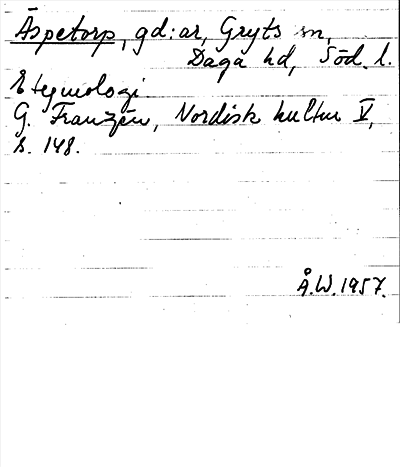 Äspetorp, gd:ar, Gryts sn,
Daga hd, Söd. l.
Etymologi
G. Franzén, Nordisk kultur V,
s. 148.
Å.W. 1957.